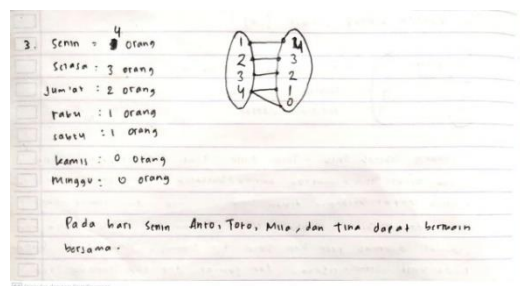 3. Senin = 4 orang
Selasa : 3 orang
Jum'at : 2 orang
rabu : 1 orang
sabtu : 1 orang
kamis : 0 orang
Minggu : 0 orang
1 4
2 3
3 2
4 1
0
Pada hari Senin Anto, Toto, Mila, dan tina dapat bermain
bersama.